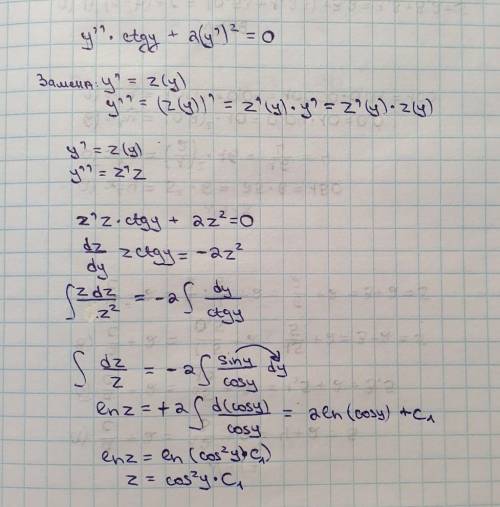 y'' · ctgy + 2(y')² = 0
Замена: y' = z(y)
y'' = (z(y))' = z'(y) · y' = z'(y) · z(y)
y' = z(y)
y'' = z'z
z'z · ctgy + 2z² = 0
dz/dy zctgy = -2z²
∫ zdz/z² = -2∫ dy/ctgy
∫ dz/z = -2∫ siny/cosy dy
lnz = +2∫ d(cosy)/cosy = 2ln(cosy) + C₁
lnz = ln(cos²y · C₁)
z = cos²y · C₁